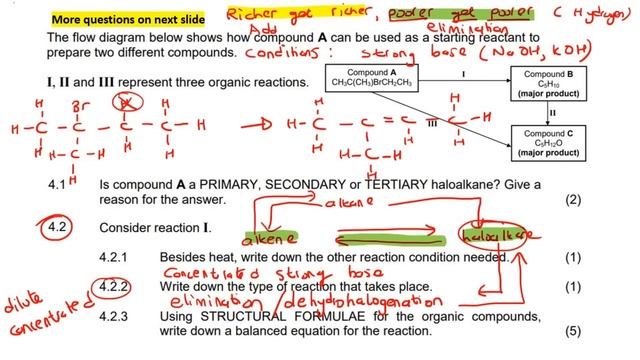 More questions on next slide Richer get richer, pooler get pooler (Hydrogen)
Add elimination
The flow diagram below shows how compound A can be used as a starting reactant to
prepare two different compounds. Conditions : strong base (NaOH, KOH)
I, II and III represent three organic reactions.
Compound A
CH₃C(CH₃)BrCH₂CH₃
I
Compound B
C₅H₁₀
(major product)
II
III
Compound C
C₅H₁₂O
(major product)
H Br H H
H-C-C-C-C-H → H-C-C=C-C-H
H H-C-H H H
H
H-C-H
H
4.1 Is compound A a PRIMARY, SECONDARY or TERTIARY haloalkane? Give a
reason for the answer. (2)
alkane
4.2 Consider reaction I.
alkene haloalkane
4.2.1 Besides heat, write down the other reaction condition needed. (1)
Concentrated strong base
4.2.2 Write down the type of reaction that takes place. (1)
elimination / dehydrohalogenation
dilute
concentrated
4.2.3 Using STRUCTURAL FORMULAE for the organic compounds,
write down a balanced equation for the reaction. (5)